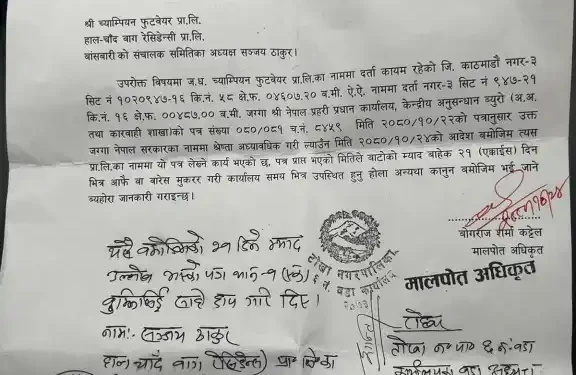 श्री च्याम्पियन फुटवेयर प्रा.लि.
हाल-चाँद बाग रेसिडेन्सी प्रा.लि.
बांसबारी को संचालक समितिका अध्यक्ष सञ्जय ठाकुर।
उपरोक्त बिषयमा ज.ध. च्याम्पियन फुटवेयर प्रा.लि.का नाममा दर्ता कायम रहेको जि. काठमाडौं नगर-३
सिट नं १०२०९४७-१६ कि.नं. ५८ क्षे.फ. ०४६०७.२० ब.मी. ऐ.ऐ. नाममा दर्ता नगर-३ सिट नं ९४७-२१
कि.नं. १६ क्षे.फ. ००४८७.०० ब.मी. जग्गा श्री नेपाल प्रहरी प्रधान कार्यालय, केन्द्रीय अनुसन्धान ब्युरो (अ.अ.
तथा कारबाही शाखा)को पत्र संख्या ०८०/०८१ च.नं. ८४५९ मिति २०८०/१०/२२को पत्रानुसार उक्त
जग्गा नेपाल सरकारका नाममा श्रेष्ता अध्यावधिक गरी ल्याउँन मिति २०८०/१०/२४को आदेश बमोजिम त्यस
प्रा.लि.का नाममा यो पत्र लेख्ने कार्य भएको छ, पत्र प्राप्त भएको मितिले बाटोको म्याद बाहेक २१ (एकाईस) दिन
भित्र आफै वा बारेस मुकरर गरी कार्यालय समय भित्र उपस्थित हुनु होला अन्यथा कानुन बमोजिम भई जाने
व्यहोरा जानकारी गराइन्छ।
बोगराज शर्मा कट्टेल
मालपोत अधिकृत
मालपोत अधिकृत
टोखा नगरपालिका
६ नं. वडा कार्यालय
यसै बमोजिमको २१ दिने म्याद
उल्लेख भएको पत्र थान-१ (एक)
बुझिलिई सहि छाप गरि दिए।
नामः- सञ्जय ठाकुर
हाल चाँद बाग रेसिडेन्सी प्रा लि का
टोखा न पा ६ नं. वडा